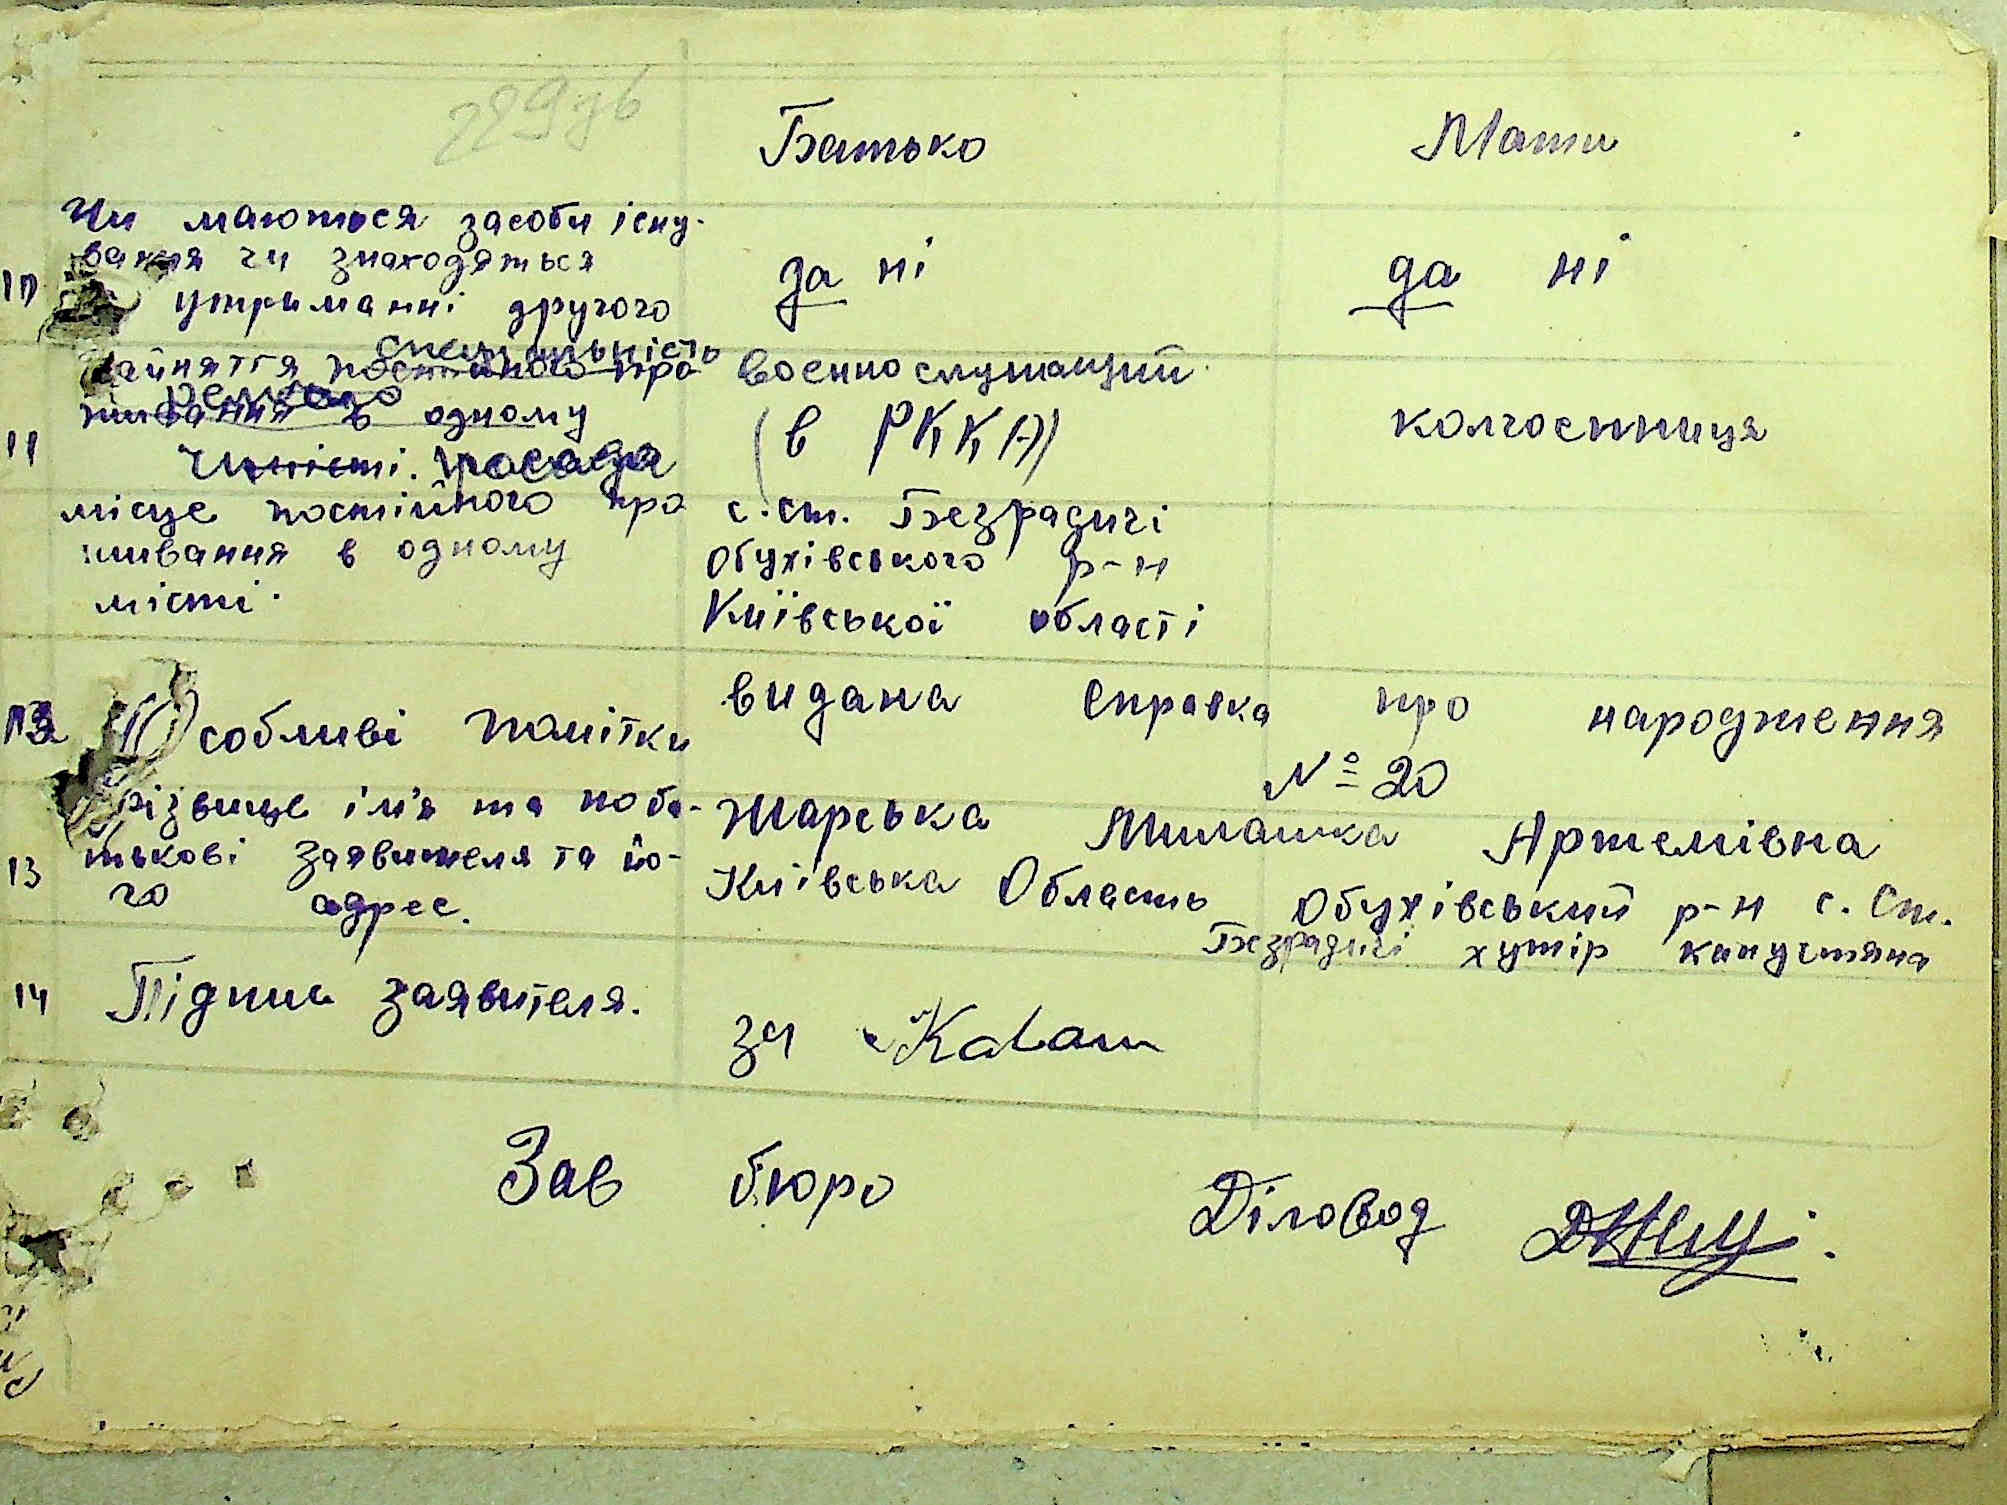 229зв
Батько Мати
Чи маються засоби існу-
вання чи знаходяться
10 утриманні другого
да ні да ні
спеціальність
зайняття постійного про
ремесло
живання в одному
11 місті. посада
военнослужащий
(в РККА)
колгоспниця
місце постійного про
живання в одному
місті.
с. ст. Безрадичі
Обухівського р-н
Київської області
12 Особливі помітки
видана справка про народження
№ 20
прізвище ім'я та поба-
13 тькові заявителя та йо-
го адрес.
Жарська Милашка Артемівна
Київська Область Обухівський р-н с. Ст.
Безрадичі хутір Капустяна
14 Підпис заявителя.
за
Зав бюро Діловод